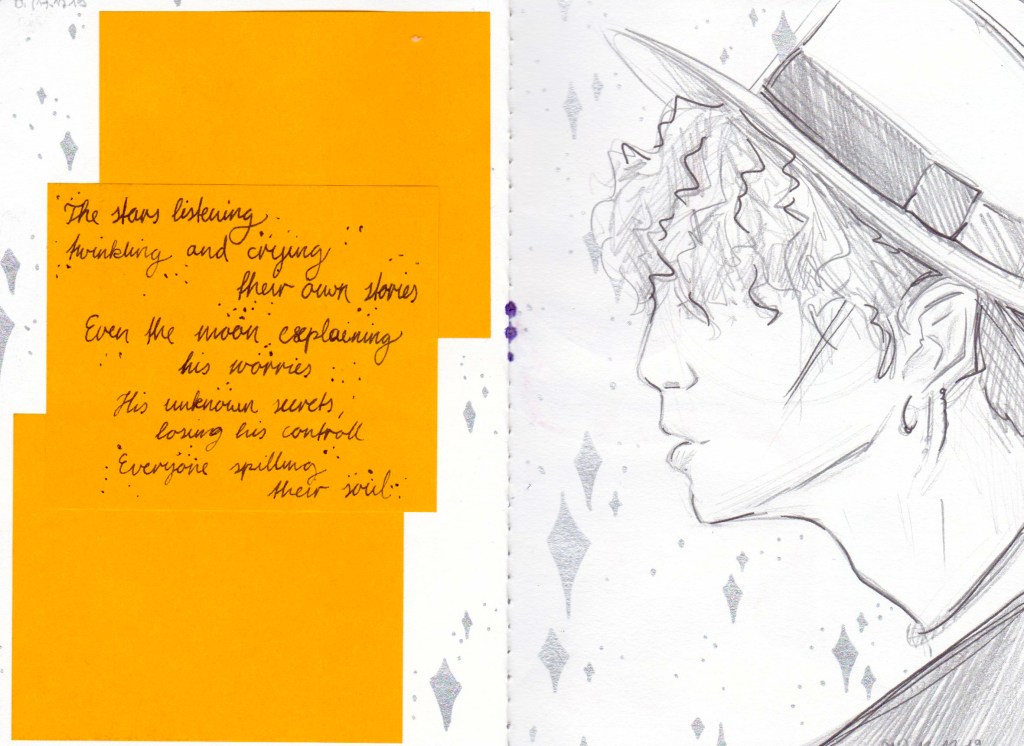 The stars listening
twinkling and crying
their own stories
Even the moon explaining
his worries
His unknown secrets,
losing his controll
Everyone spilling
their soul.